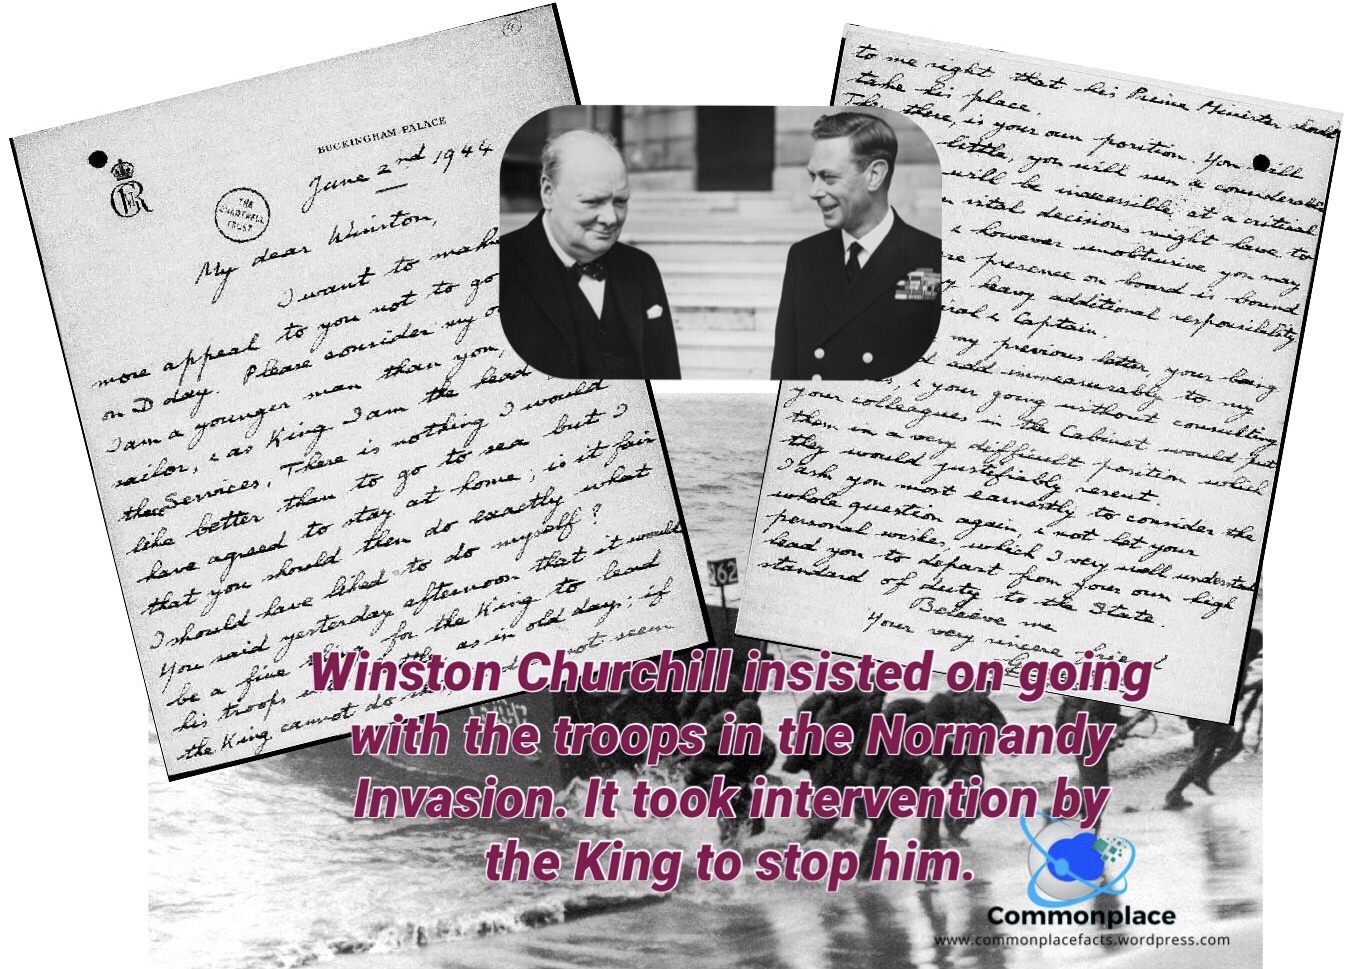 BUCKINGHAM PALACE
June 2nd 1944
THE
CHARTWELL
TRUST
My dear Winston,
I want to make
more appeal to you not to go
on D day. Please consider my
I am a younger man than you,
sailor, & as King I am the head
the Services. There is nothing I would
like better than to go to sea but I
have agreed to stay at home; is it fair
that you should then do exactly what
I should have liked to do myself?
You said yesterday afternoon that it would
be a fine thing for the King to lead
his troops as in old days; if
the King cannot do not seem
to me right that his Prime Minister should
take his place.
Then there is your own position. You will
little, you will run a considerable
will be inaccessible at a critical
vital decisions might have to
however unobtrusive you may
presence on board is bound
heavy additional responsibility
& Captain.
my previous letter, your being
add immeasurably to my
& your going without consulting
your colleagues in the Cabinet would put
them in a very difficult position which
they would justifiably resent.
I ask you most earnestly to consider the
whole question again & not let your
personal wishes, which I very well understand
lead you to depart from your own high
standard of duty to the State.
Believe me
Your very sincere friend
262
Winston Churchill insisted on going
with the troops in the Normandy
Invasion. It took intervention by
the King to stop him.
Commonplace
www.commonplacefacts.wordpress.com